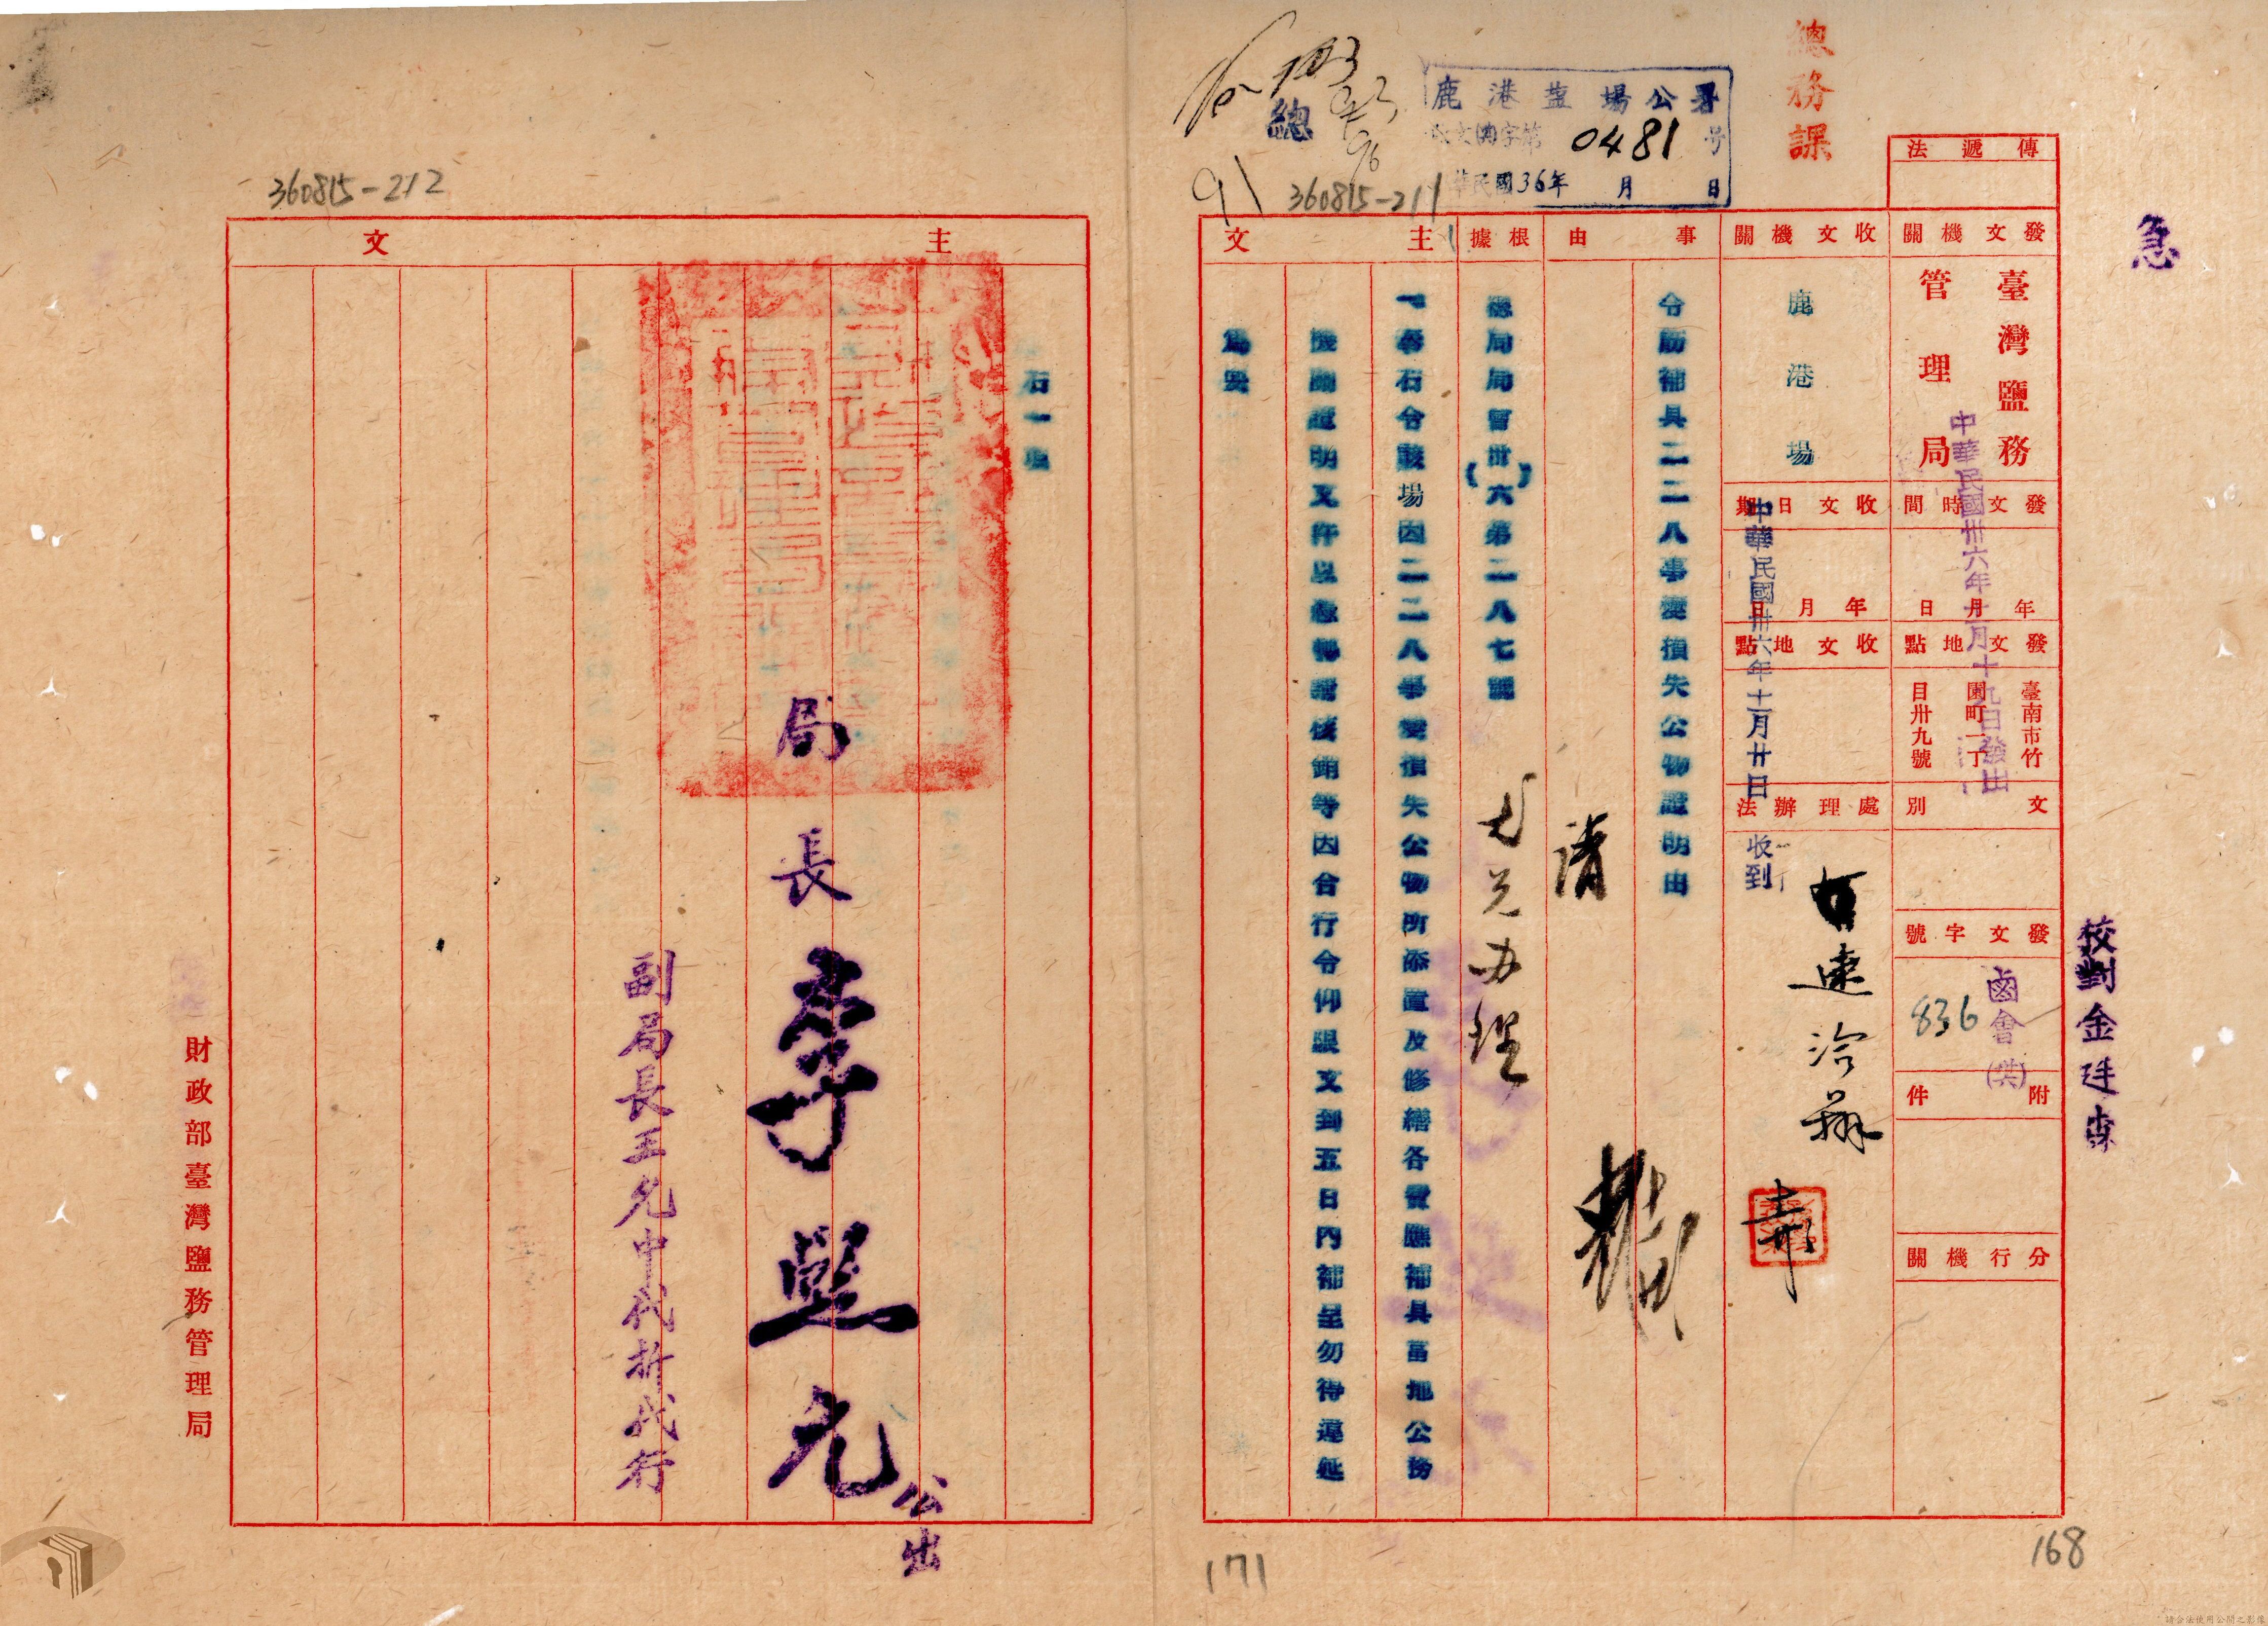 急
校對金廷森
傳遞法
發文機關
臺灣鹽務
管理局
發文時間
年月日
中華民國卅六年十一月十九日發出
發文地點
臺南市竹
園町一丁
目卅九號
文別
發文字號
鹵會(共)
836
附件
分行機關
總務課
收文機關
鹿港場
收文日期
年月日
中華民國卅六年十一月廿日
收到
收文地點
處理辦法
鹿港鹽場公署
0481號
華民國36年 月 日
事由
令飭補具二二八事變損失公物證明由
請
根據
總局局會(卅六)第二八七號
主文
一奉石令該場因二二八事變損失公物所添置及修繕各費應補具當地公務
機關證明文件以憑轉請核銷等因合行令仰限文到五日內補呈勿得違延
為要
總
91
360815-211
171
168
360815-212
主文
石一場
局長李
公出
副局長王允中代折代行
財政部臺灣鹽務管理局
請合法使用公開之影像